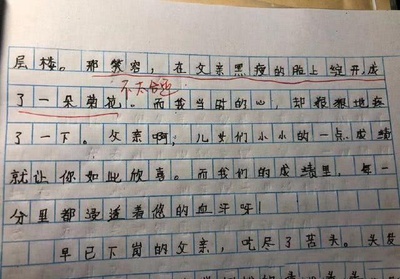 层楼。那笑容，在父亲黑瘦的脸上绽开，成
不太合理
了一朵菊花。而我当时的心，却狠狠地疼
了一下。父亲啊，儿女们小小的一点成绩
就让你如此欣喜。而我们的成绩里，每一
分里都浸透着您的血汗呀！
早已下岗的父亲，吃尽了苦头。头发